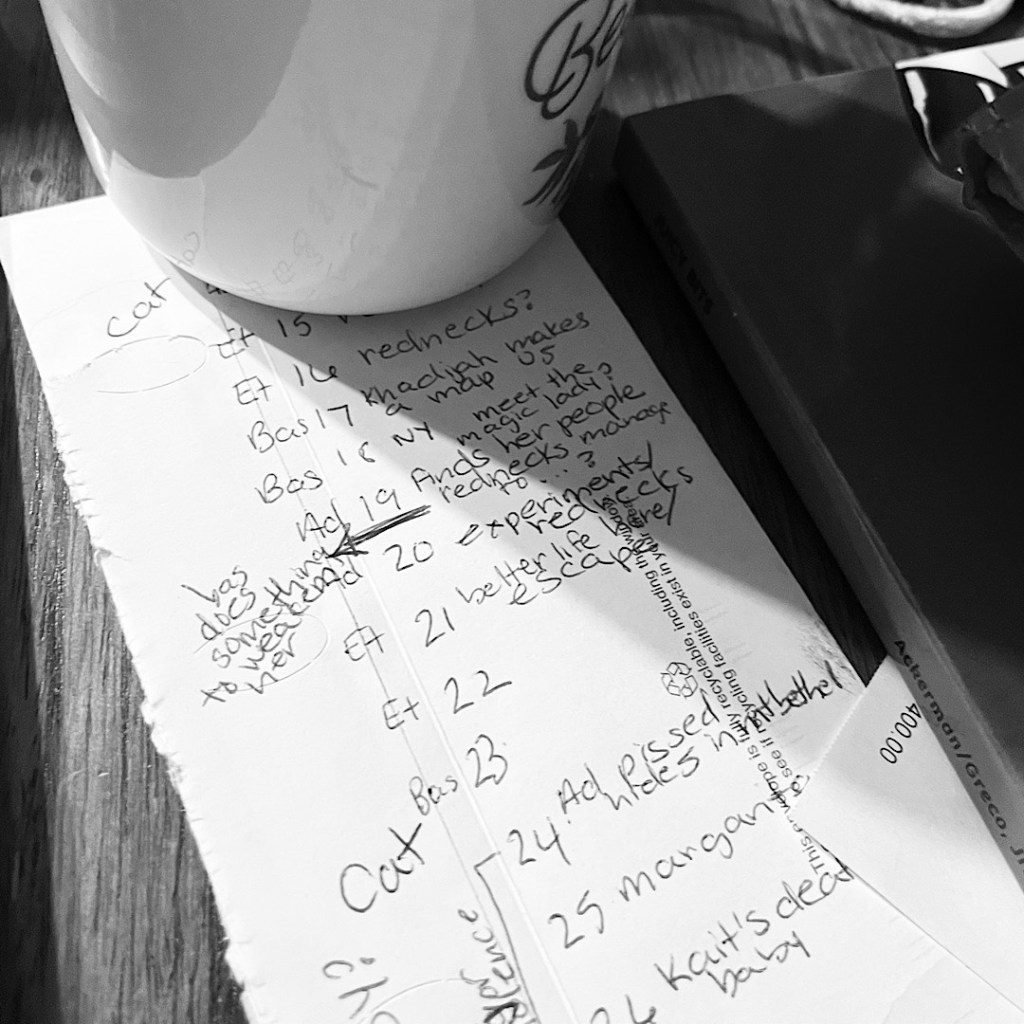 Be
cat
Et 15
Et 16 rednecks?
Bas 17 Khadijah makes
a map US
Bas 18 NY meet the
magic lady?
Ad 19 finds her people
rednecks manage
to...?
Ad 20 experiments/
rednecks
bas
does
something
to weaken
her
Et 21 better life
escape
Et 22
Bas 23
Cat
24 Ad pissed
hides in
25
Kait's dead
baby
26
This envelope is fully recyclable, including the window
see if recycling facilities exist in your area
400.00
Ackerman/Greco, J
JUICY BITS